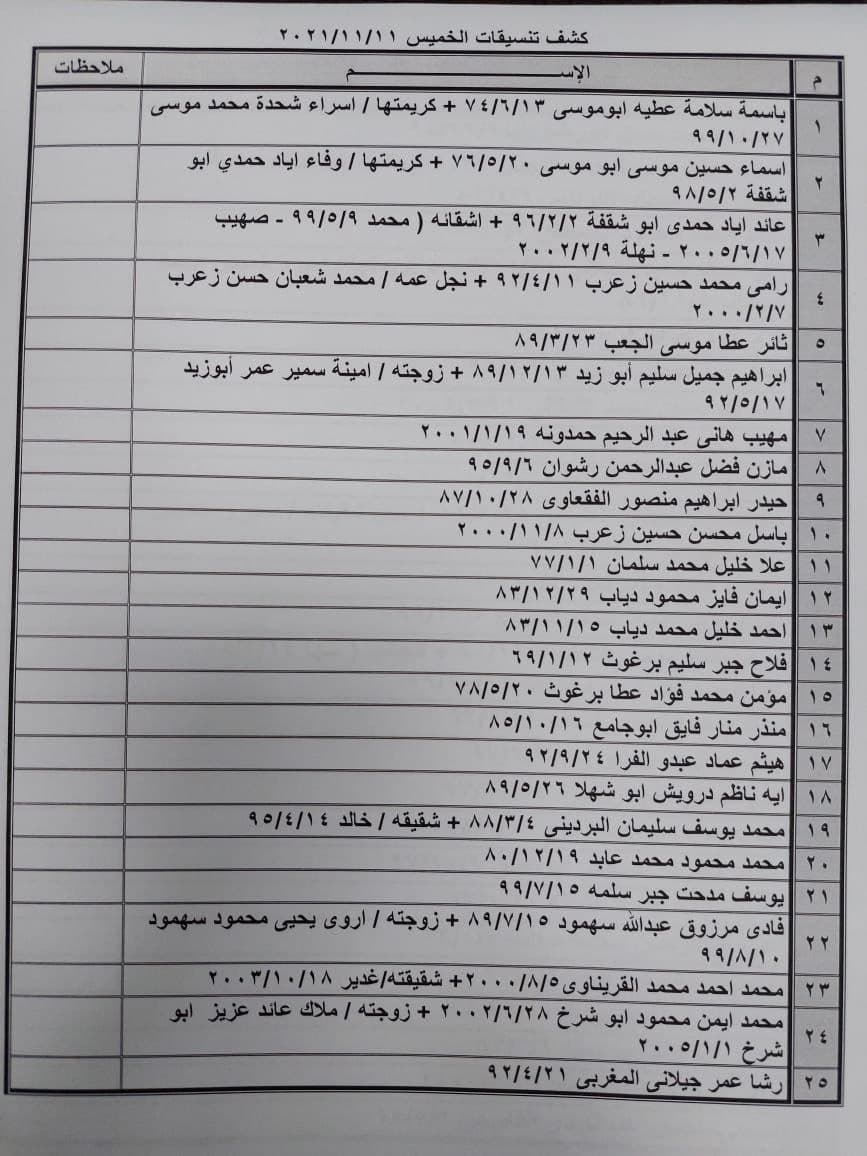 كشف تنسيقات الخميس ٢٠٢١/١١/١١
م الإســـــــــــــــم ملاحظات
١ باسمة سلامة عطيه ابوموسى ٧٤/٦/١٣ + كريمتها / اسراء شحدة محمد موسى
٩٩/١٠/٢٧
٢ اسماء حسين موسى ابو موسى ٧٦/٥/٢٠ + كريمتها / وفاء اياد حمدي ابو
شقفة ٩٨/٥/٢
٣ عائد اياد حمدى ابو شقفة ٩٦/٢/٢ + اشقائه ( محمد ٩٩/٥/٩ - صهيب
٢٠٠٥/٦/١٧ - نهلة ٢٠٠٢/٢/٩
٤ رامى محمد حسين زعرب ٩٢/٤/١١ + نجل عمه / محمد شعبان حسن زعرب
٢٠٠٠/٢/٧
٥ ثائر عطا موسى الجعب ٨٩/٣/٢٣
٦ ابراهيم جميل سليم أبو زيد ٨٩/١٢/١٣ + زوجته / امينة سمير عمر أبوزيد
٩٢/٥/١٧
٧ مهيب هانى عبد الرحيم حمدونه ٢٠٠١/١/١٩
٨ مازن فضل عبدالرحمن رشوان ٩٥/٩/٦
٩ حيدر ابراهيم منصور الفقعاوى ٨٧/١٠/٢٨
١٠ باسل محسن حسين زعرب ٢٠٠٠/١١/٨
١١ علا خليل محمد سلمان ٧٧/١/١
١٢ ايمان فايز محمود دياب ٨٣/١٢/٢٩
١٣ احمد خليل محمد دياب ٨٣/١١/١٥
١٤ فلاح جبر سليم برغوث ٦٩/١/١٢
١٥ مؤمن محمد فؤاد عطا برغوث ٧٨/٥/٢٠
١٦ منذر منار فايق ابوجامع ٨٥/١٠/١٦
١٧ هيثم عماد عبدو الفرا ٩٢/٩/٢٤
١٨ ايه ناظم درويش ابو شهلا ٨٩/٥/٢٦
١٩ محمد يوسف سليمان البردينى ٨٨/٣/٤ + شقيقه / خالد ٩٥/٤/١٤
٢٠ محمد محمود محمد عابد ٨٠/١٢/١٩
٢١ يوسف مدحت جبر سلمه ٩٩/٧/١٥
٢٢ فادى مرزوق عبدالله سهمود ٨٩/٧/١٥ + زوجته / اروى يحيى محمود سهمود
٩٩/٨/١٠
٢٣ محمد احمد محمد القريناوى ٢٠٠٠/٨/٥+ شقيقته/غدير ٢٠٠٣/١٠/١٨
٢٤ محمد ايمن محمود ابو شرخ ٢٠٠٢/٦/٢٨ + زوجته / ملاك عائد عزيز ابو
شرخ ٢٠٠٥/١/١
٢٥ رشا عمر جيلانى المغربى ٩٢/٤/٢١